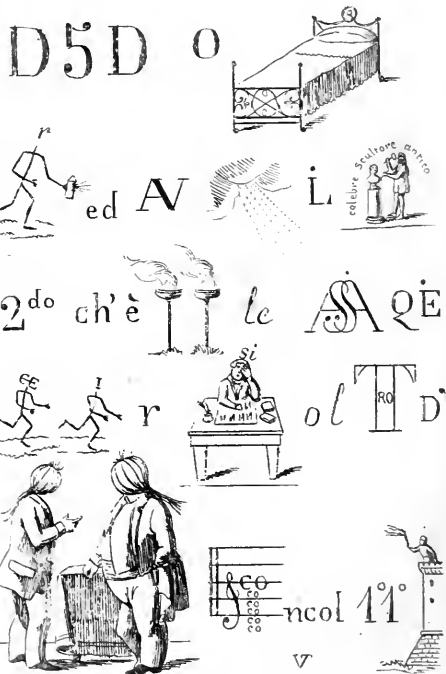 D5D O
r
ed AV L celebre scultore antico
2do ch'è le ASSA QE
EE I r si ol T RO D'
co
co
co
co
co
ncol 1°1°
V